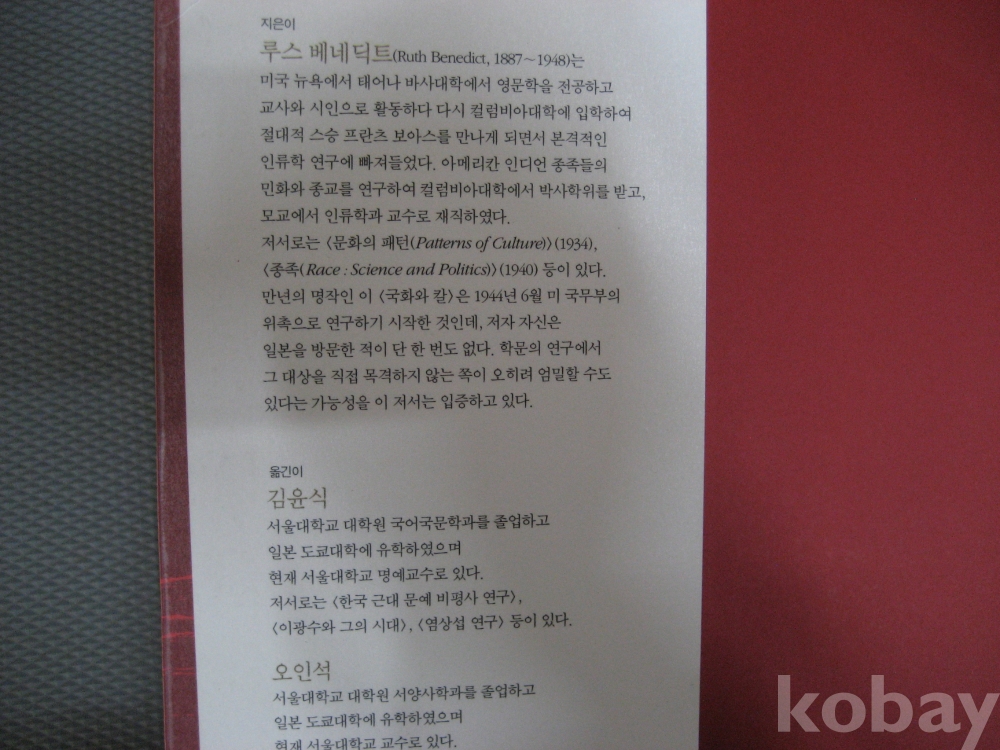 지은이
루스 베네딕트(Ruth Benedict, 1887~1948)는
미국 뉴욕에서 태어나 바사대학에서 영문학을 전공하고
교사와 시인으로 활동하다 다시 컬럼비아대학에 입학하여
절대적 스승 프란츠 보아스를 만나게 되면서 본격적인
인류학 연구에 빠져들었다. 아메리칸 인디언 종족들의
민화와 종교를 연구하여 컬럼비아대학에서 박사학위를 받고,
모교에서 인류학과 교수로 재직하였다.
저서로는 〈문화의 패턴(Patterns of Culture)〉(1934),
〈종족(Race : Science and Politics)〉(1940) 등이 있다.
만년의 명작인 이 〈국화와 칼〉은 1944년 6월 미 국무부의
위촉으로 연구하기 시작한 것인데, 저자 자신은
일본을 방문한 적이 단 한 번도 없다. 학문의 연구에서
그 대상을 직접 목격하지 않는 쪽이 오히려 엄밀할 수도
있다는 가능성을 이 저서는 입증하고 있다.
옮긴이
김윤식
서울대학교 대학원 국어국문학과를 졸업하고
일본 도쿄대학에 유학하였으며
현재 서울대학교 명예교수로 있다.
저서로는 〈한국 근대 문예 비평사 연구〉,
〈이광수와 그의 시대〉, 〈염상섭 연구〉 등이 있다.
오인석
서울대학교 대학원 서양사학과를 졸업하고
일본 도쿄대학에 유학하였으며
현재 서울대학교 교수로 있다.
kobay